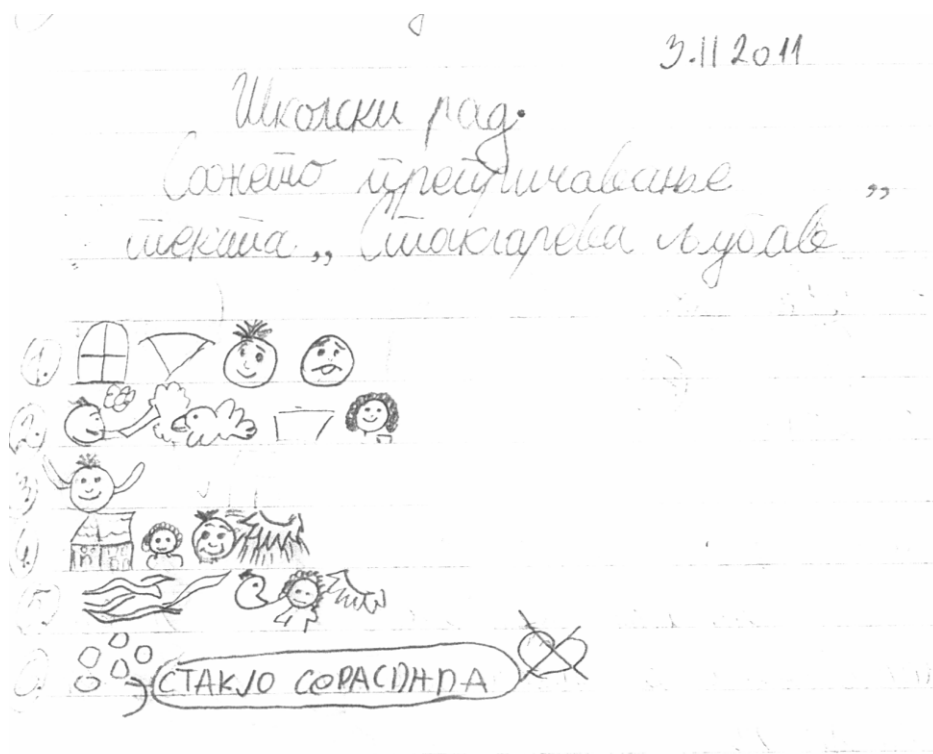 3.II 2011
Школски рад.
Сажето препричавање
текста „Стакларева љубав”
1.
2.
3.
4.
5.
СТАКЛО СЕ РАСПАДА